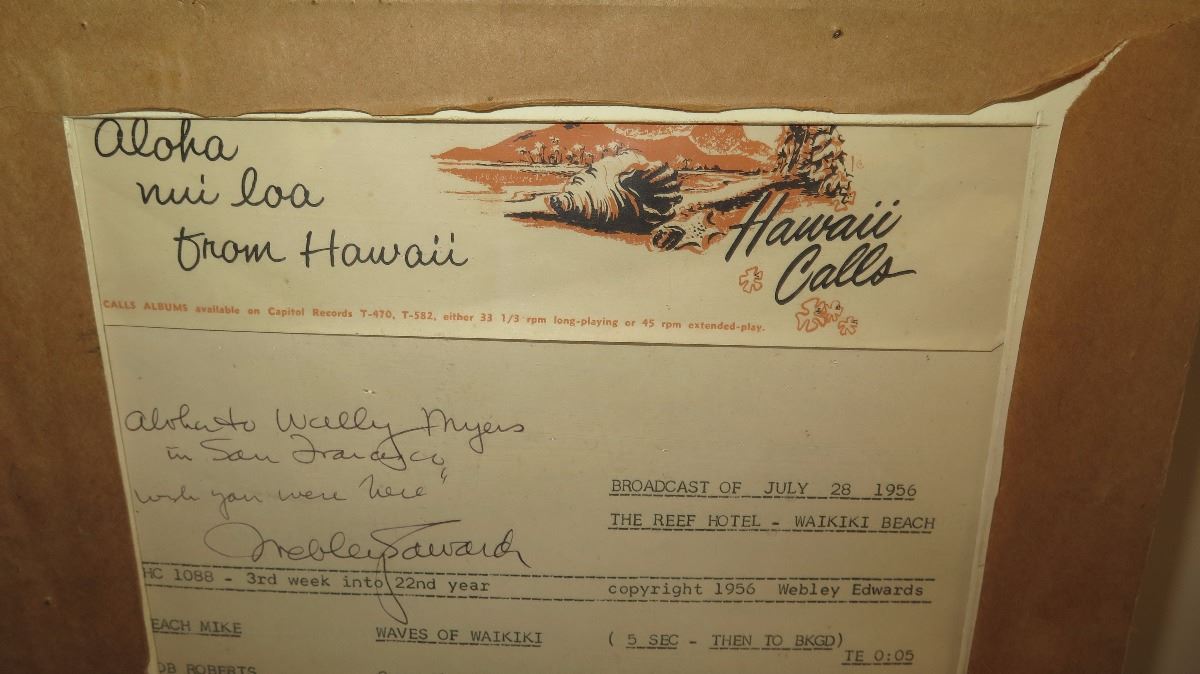 Aloha
nui loa
from Hawaii
Hawaii
Calls
CALLS ALBUMS available on Capitol Records T-470, T-582, either 33 1/3 rpm long-playing or 45 rpm extended-play.
Aloha to Wally Myers
in San Francisco
wish you were here"
Webley Edwards
BROADCAST OF JULY 28 1956
THE REEF HOTEL - WAIKIKI BEACH
HC 1088 - 3rd week into 22nd year
copyright 1956 Webley Edwards
EACH MIKE
WAVES OF WAIKIKI
( 5 SEC - THEN TO BKGD)
TE 0:05
OB ROBERTS